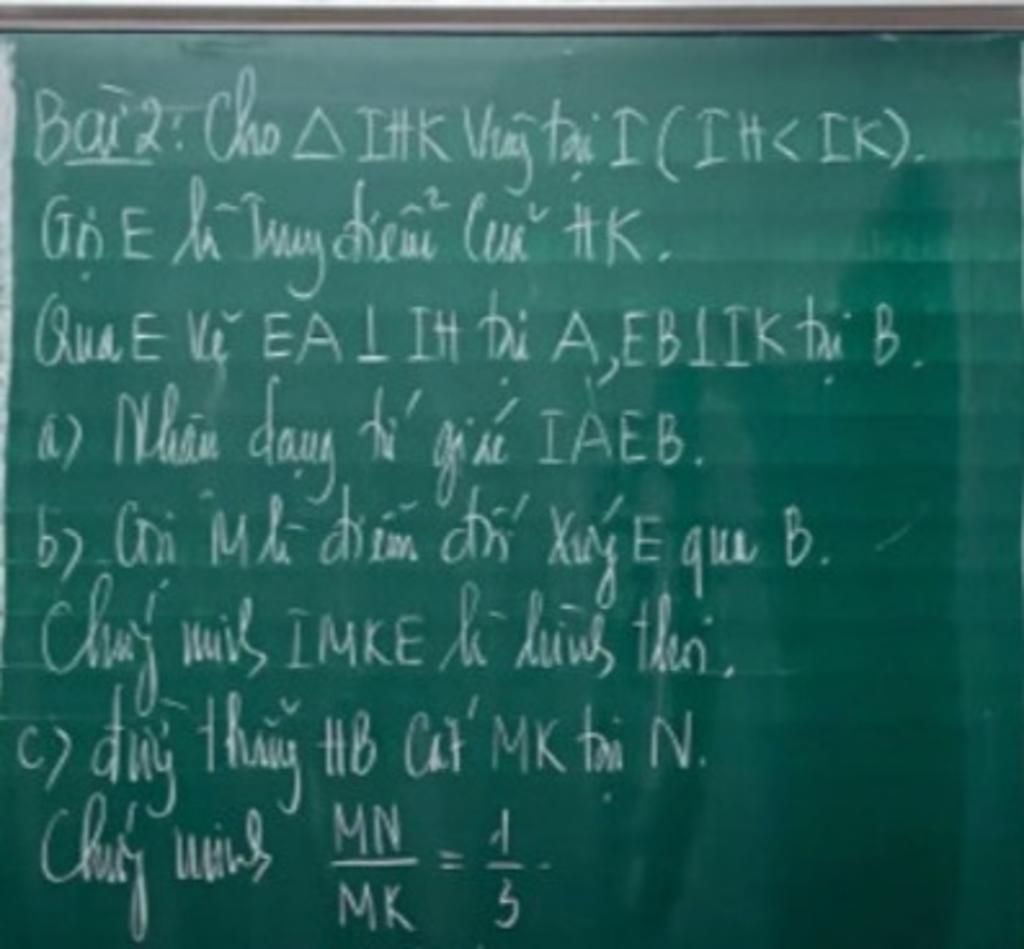 Bài 2: Cho △ IHK Vuông tại I ( IH < IK ).
Gọi E là Trung điểm Của HK.
Qua E Vẽ EA ⊥ IH tại A, EB ⊥ IK tại B.
a) Nhận dạng tứ giác IAEB.
b) Gọi M là điểm đối Xứng E qua B.
Chứng minh IMKE là hình thoi.
c) đường thẳng HB Cắt MK tại N.
Chứng minh MN/MK = 1/3.